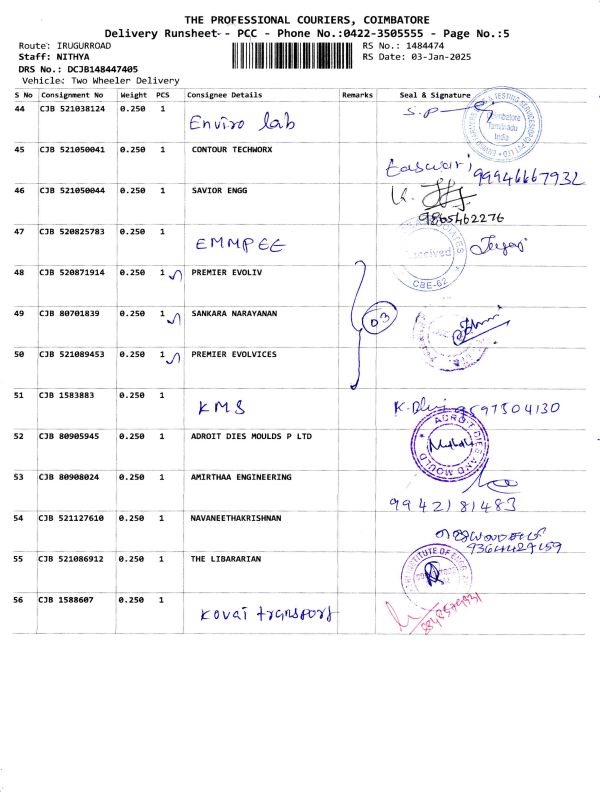 THE PROFESSIONAL COURIERS, COIMBATORE
Delivery Runsheet- - PCC - Phone No.:0422-3505555 - Page No.:5
Route: IRUGURROAD RS No.: 1484474
Staff: NITHYA RS Date: 03-Jan-2025
DRS No.: DCJB148447405
Vehicle: Two Wheeler Delivery
S No Consignment No Weight PCS Consignee Details Remarks Seal & Signature
44 CJB 521038124 0.250 1 Enviro lab S.P
Coimbatore
Tamilnadu
India
45 CJB 521050041 0.250 1 CONTOUR TECHWORX Easwari 99946667932
46 CJB 521050044 0.250 1 SAVIOR ENGG
9865462276
47 CJB 520825783 0.250 1 EMMPEE
Received
CBE-62
48 CJB 520871914 0.250 1 PREMIER EVOLIV
49 CJB 80701839 0.250 1 SANKARA NARAYANAN 03
50 CJB 521089453 0.250 1 PREMIER EVOLVICES
51 CJB 1583883 0.250 1 KMS 9597504130
52 CJB 80905945 0.250 1 ADROIT DIES MOULDS P LTD
ADROIT DIES AND MOULD
53 CJB 80908024 0.250 1 AMIRTHAA ENGINEERING
9942181483
54 CJB 521127610 0.250 1 NAVANEETHAKRISHNAN
9364429159
55 CJB 521086912 0.250 1 THE LIBARARIAN
INSTITUTE OF
56 CJB 1588607 0.250 1 Kovai transport